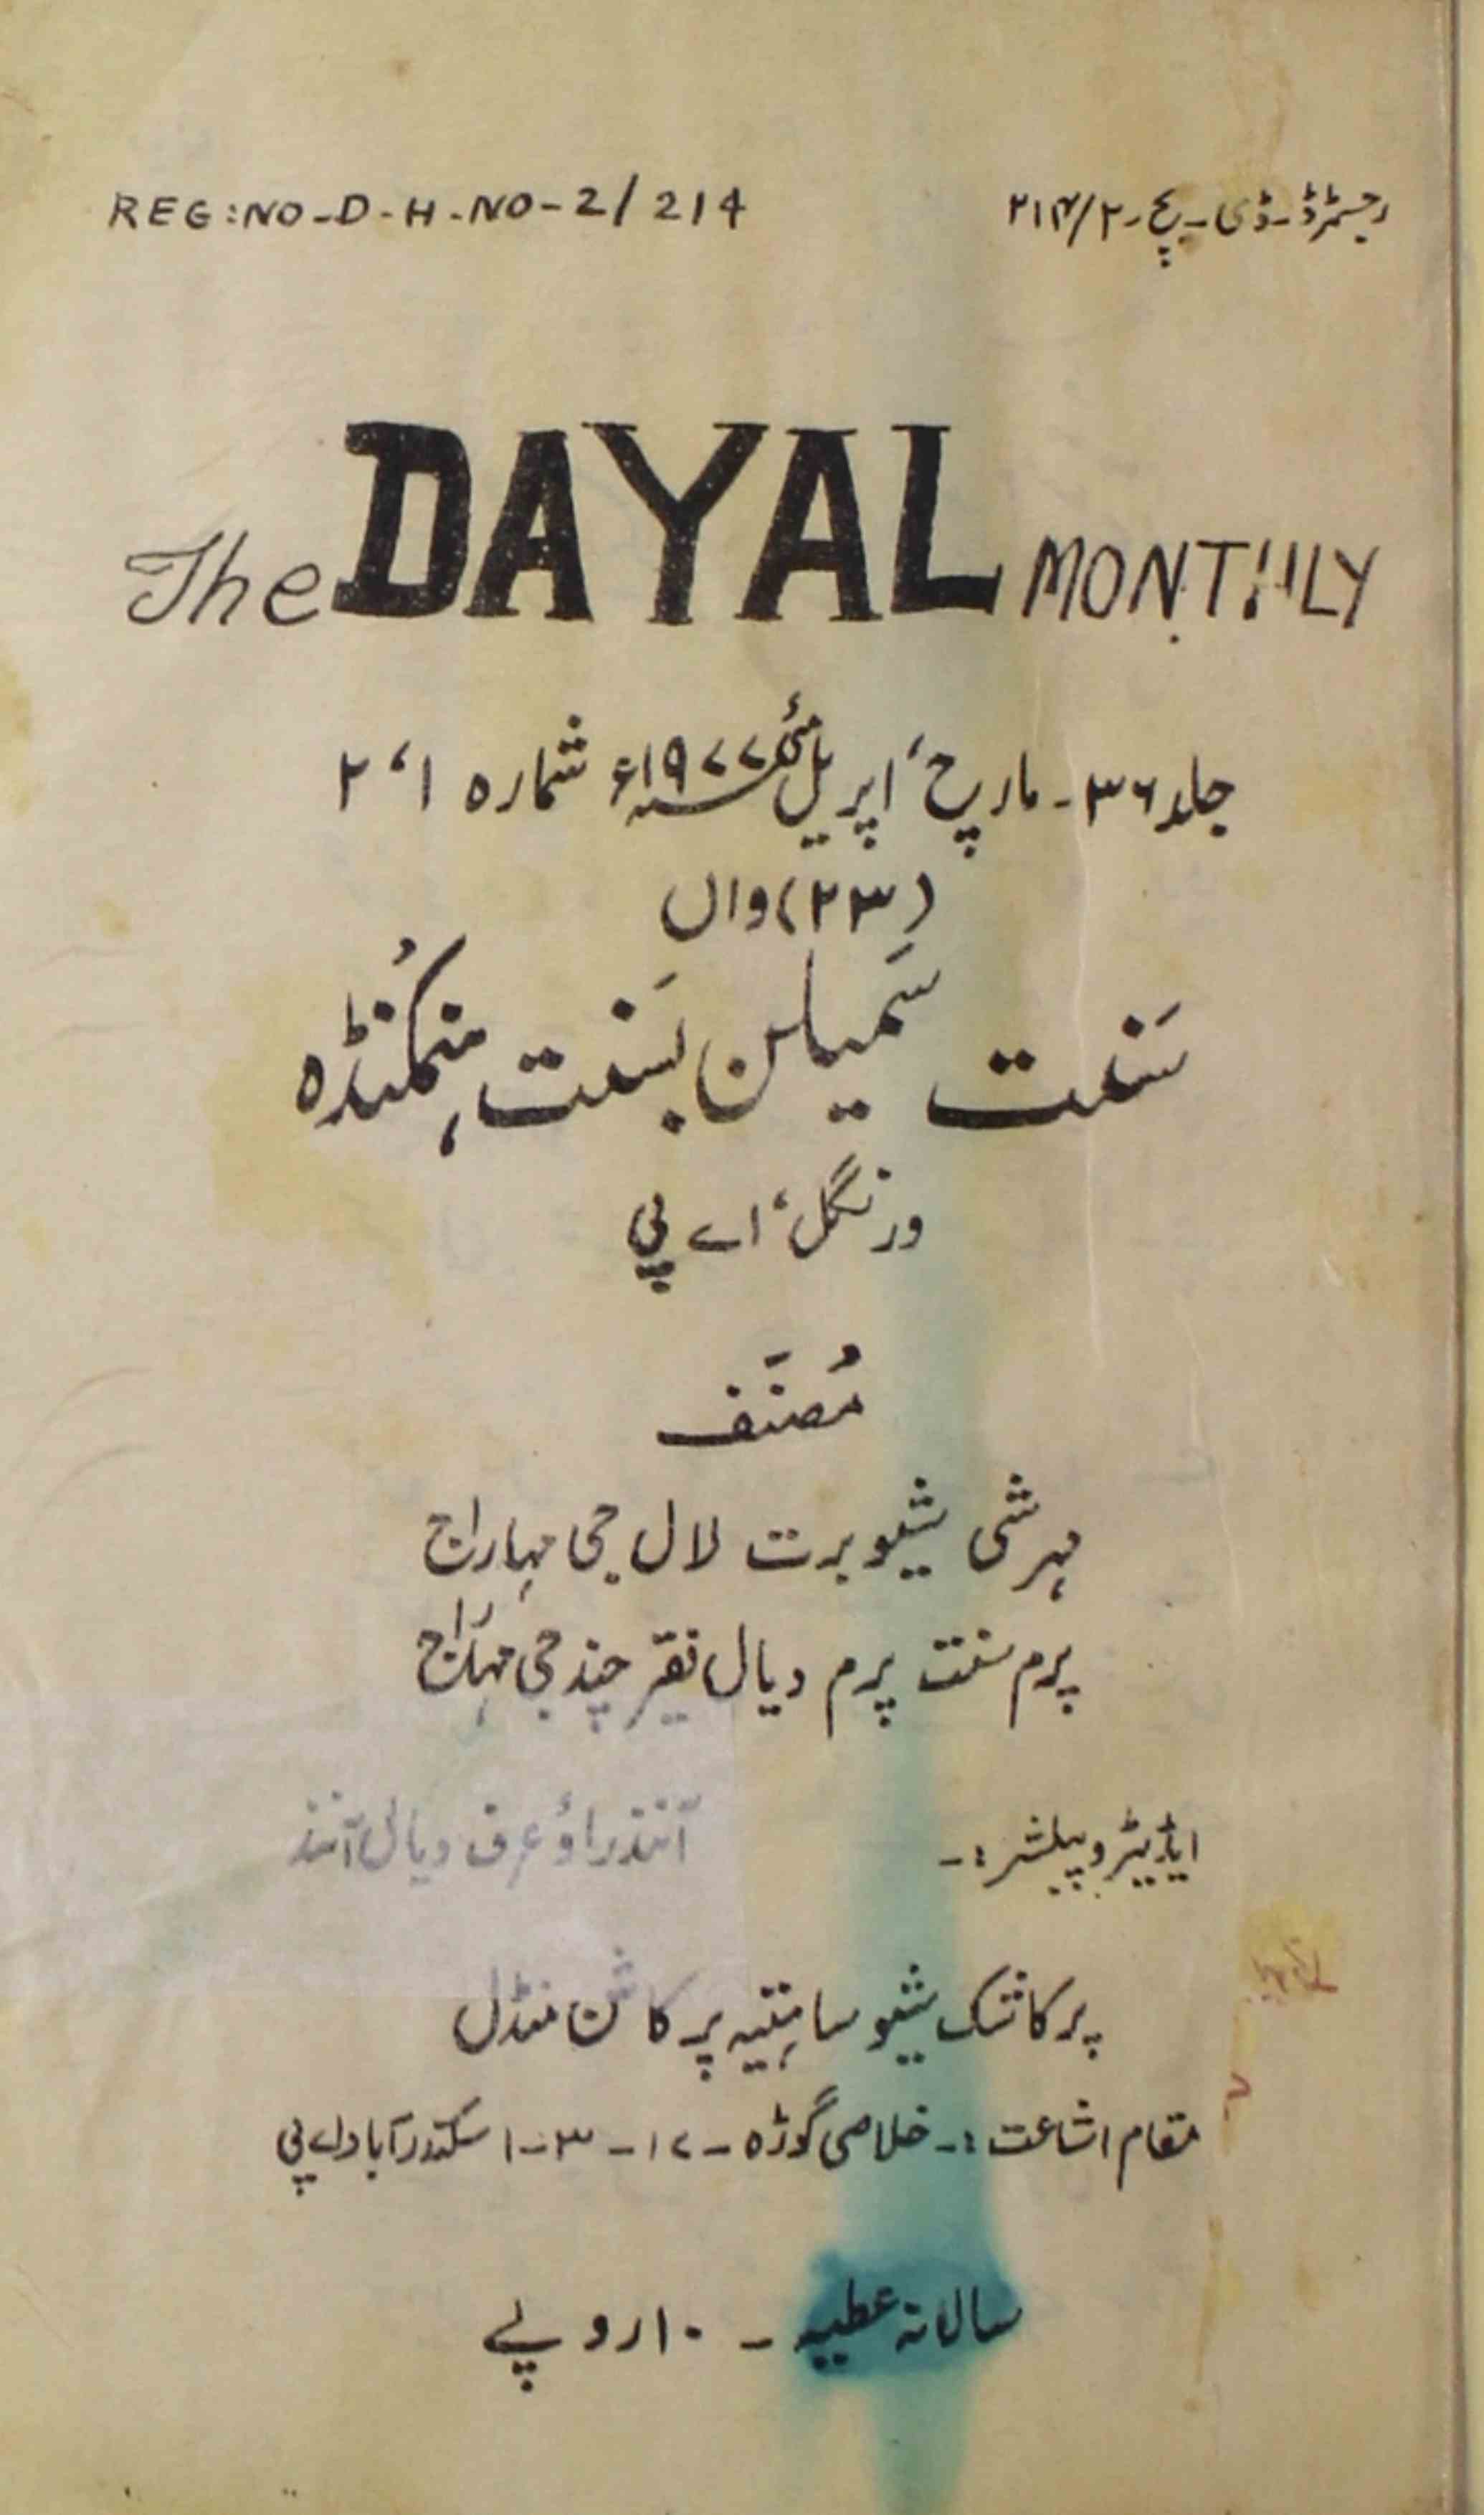 REG:NO-D-H-NO-2/214
رجسٹرڈ-ڈی-یچ-۲/۲۱۴
The DAYAL MONTHLY
جلد ۳۶- مارچ، اپریل مئی ۱۹۷۷ء شمارہ ۱، ۲
(۲۳) واں
سَنت سَمیلن بَسَنت، ہنمکُنڈہ
ورنگل، اے پی
مُصنَف
مہرشی شیو برت لال جی مہاراج
پرم سنت پرم دیال فقیر چند جی مہاراج
ایڈیٹر و پبلشر:- آنند راؤ عرف دیال آنند
پرکاشک شیو ساہتیہ پرکاشن منڈل
مقام اشاعت:- خلاصی گوڑہ - ۱۷-۳-۱ سکندرآباد اے پی
سالانہ عطیہ - ۱۰ روپے